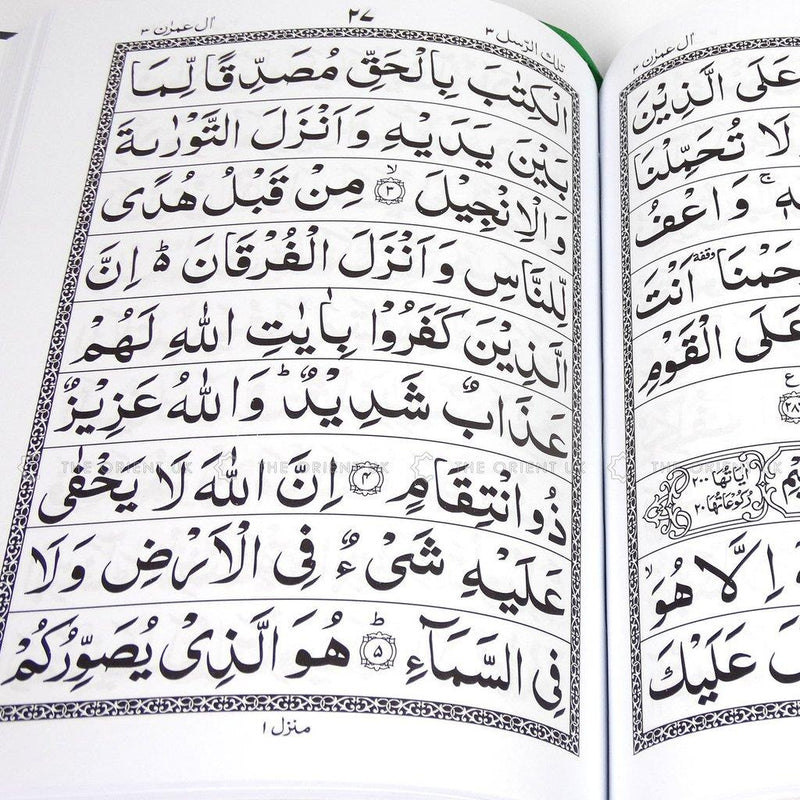 اٰل عمرٰن ٣
عَلَى الَّذِيْنَ
لَا تُحَمِّلْنَا
وَاعْفُ
اَنْتَ
عَلَى الْقَوْمِ
اٰيَاتُهَا ٢٠٠
رُكُوْعَاتُهَا ٢٠
اِلَّا هُوَ
عَلَيْكَ
تلك الرسل ٣ ٢٧ اٰل عمرٰن ٣
الْكِتٰبَ بِالْحَقِّ مُصَدِّقًا لِّمَا
بَيْنَ يَدَيْهِ وَاَنْزَلَ التَّوْرٰىةَ
وَالْاِنْجِيْلَ ۙ﴿٣﴾ مِنْ قَبْلُ هُدًى
لِّلنَّاسِ وَاَنْزَلَ الْفُرْقَانَ ؕ اِنَّ
الَّذِيْنَ كَفَرُوْا بِاٰيٰتِ اللّٰهِ لَهُمْ
عَذَابٌ شَدِيْدٌ ؕ وَاللّٰهُ عَزِيْزٌ
ذُو انْتِقَامٍ ﴿٤﴾ اِنَّ اللّٰهَ لَا يَخْفٰى
عَلَيْهِ شَىْءٌ فِى الْاَرْضِ وَلَا
فِى السَّمَآءِ ؕ﴿٥﴾ هُوَ الَّذِىْ يُصَوِّرُكُمْ
منزل ١
THE ORIENT UK THE ORIENT UK THE ORIENT UK